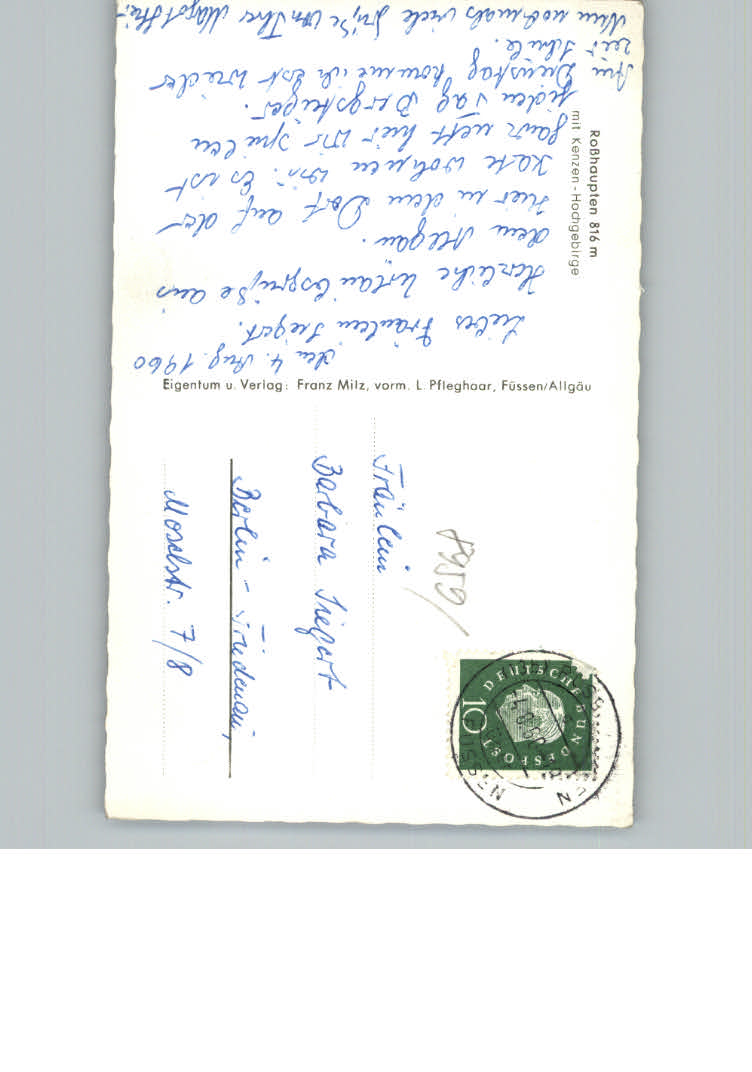 Roßhaupten 816 m
mit Kenzen - Hochgebirge
den 4. Aug. 1960
Liebes Fräulein Siegert.
Herzliche Urlaubsgrüße aus
dem Allgäu.
Hier in dem Dorf auf der
Karte wohnen wir. Es ist
ganz nett hier wir spielen
jeden Tag Bergsteiger.
Am Dienstag komme ich erst wieder
zur Schule.
Nun nochmals viele Grüße von Ihrer
Eigentum u. Verlag: Franz Milz, vorm. L. Pfleghaar, Füssen/Allgäu
Fräulein
Barbara Siegert
Berlin - Friedenau,
Moselstr. 7/8
8959
DEUTSCHE BUNDESPOST
10
FÜSSEN